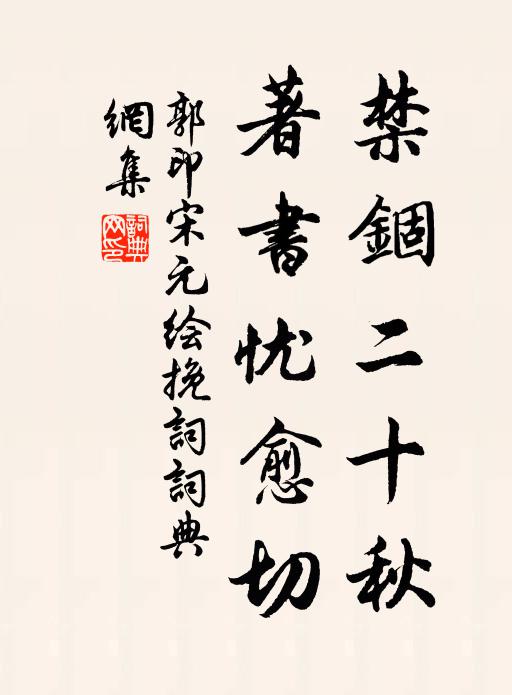 禁錮二十秋
著書忧愈切
郭印宋元绘挽詞詞典
網集
詞典网印